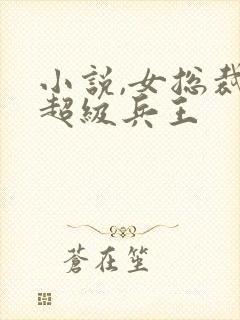 小說,女總裁
超級兵王
蒼在笙